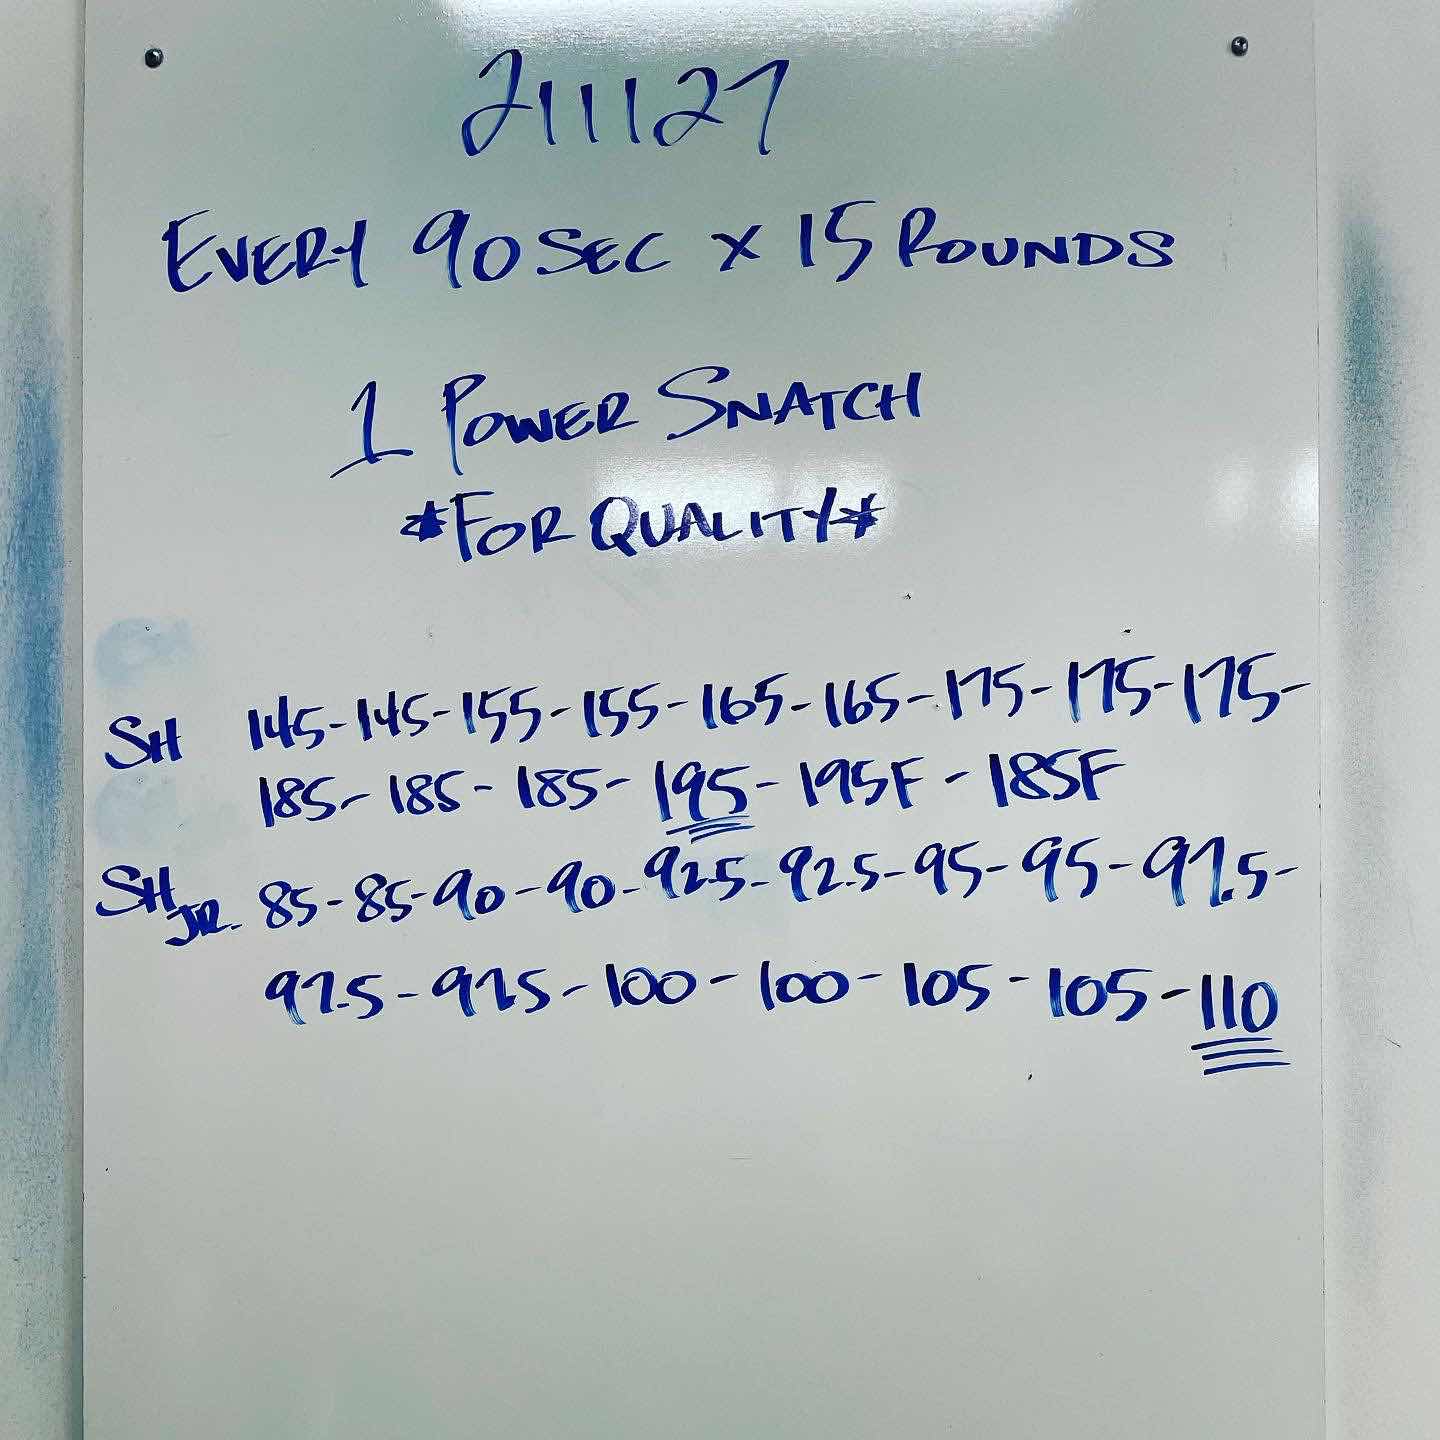 211127
EVERY 90 SEC X 15 ROUNDS
1 POWER SNATCH
*FOR QUALITY*
SH 145-145-155-155-165-165-175-175-175-
185-185-185-195-195F-185F
SH JR. 85-85-90-90-92.5-92.5-95-95-97.5-
97.5-97.5-100-100-105-105-110